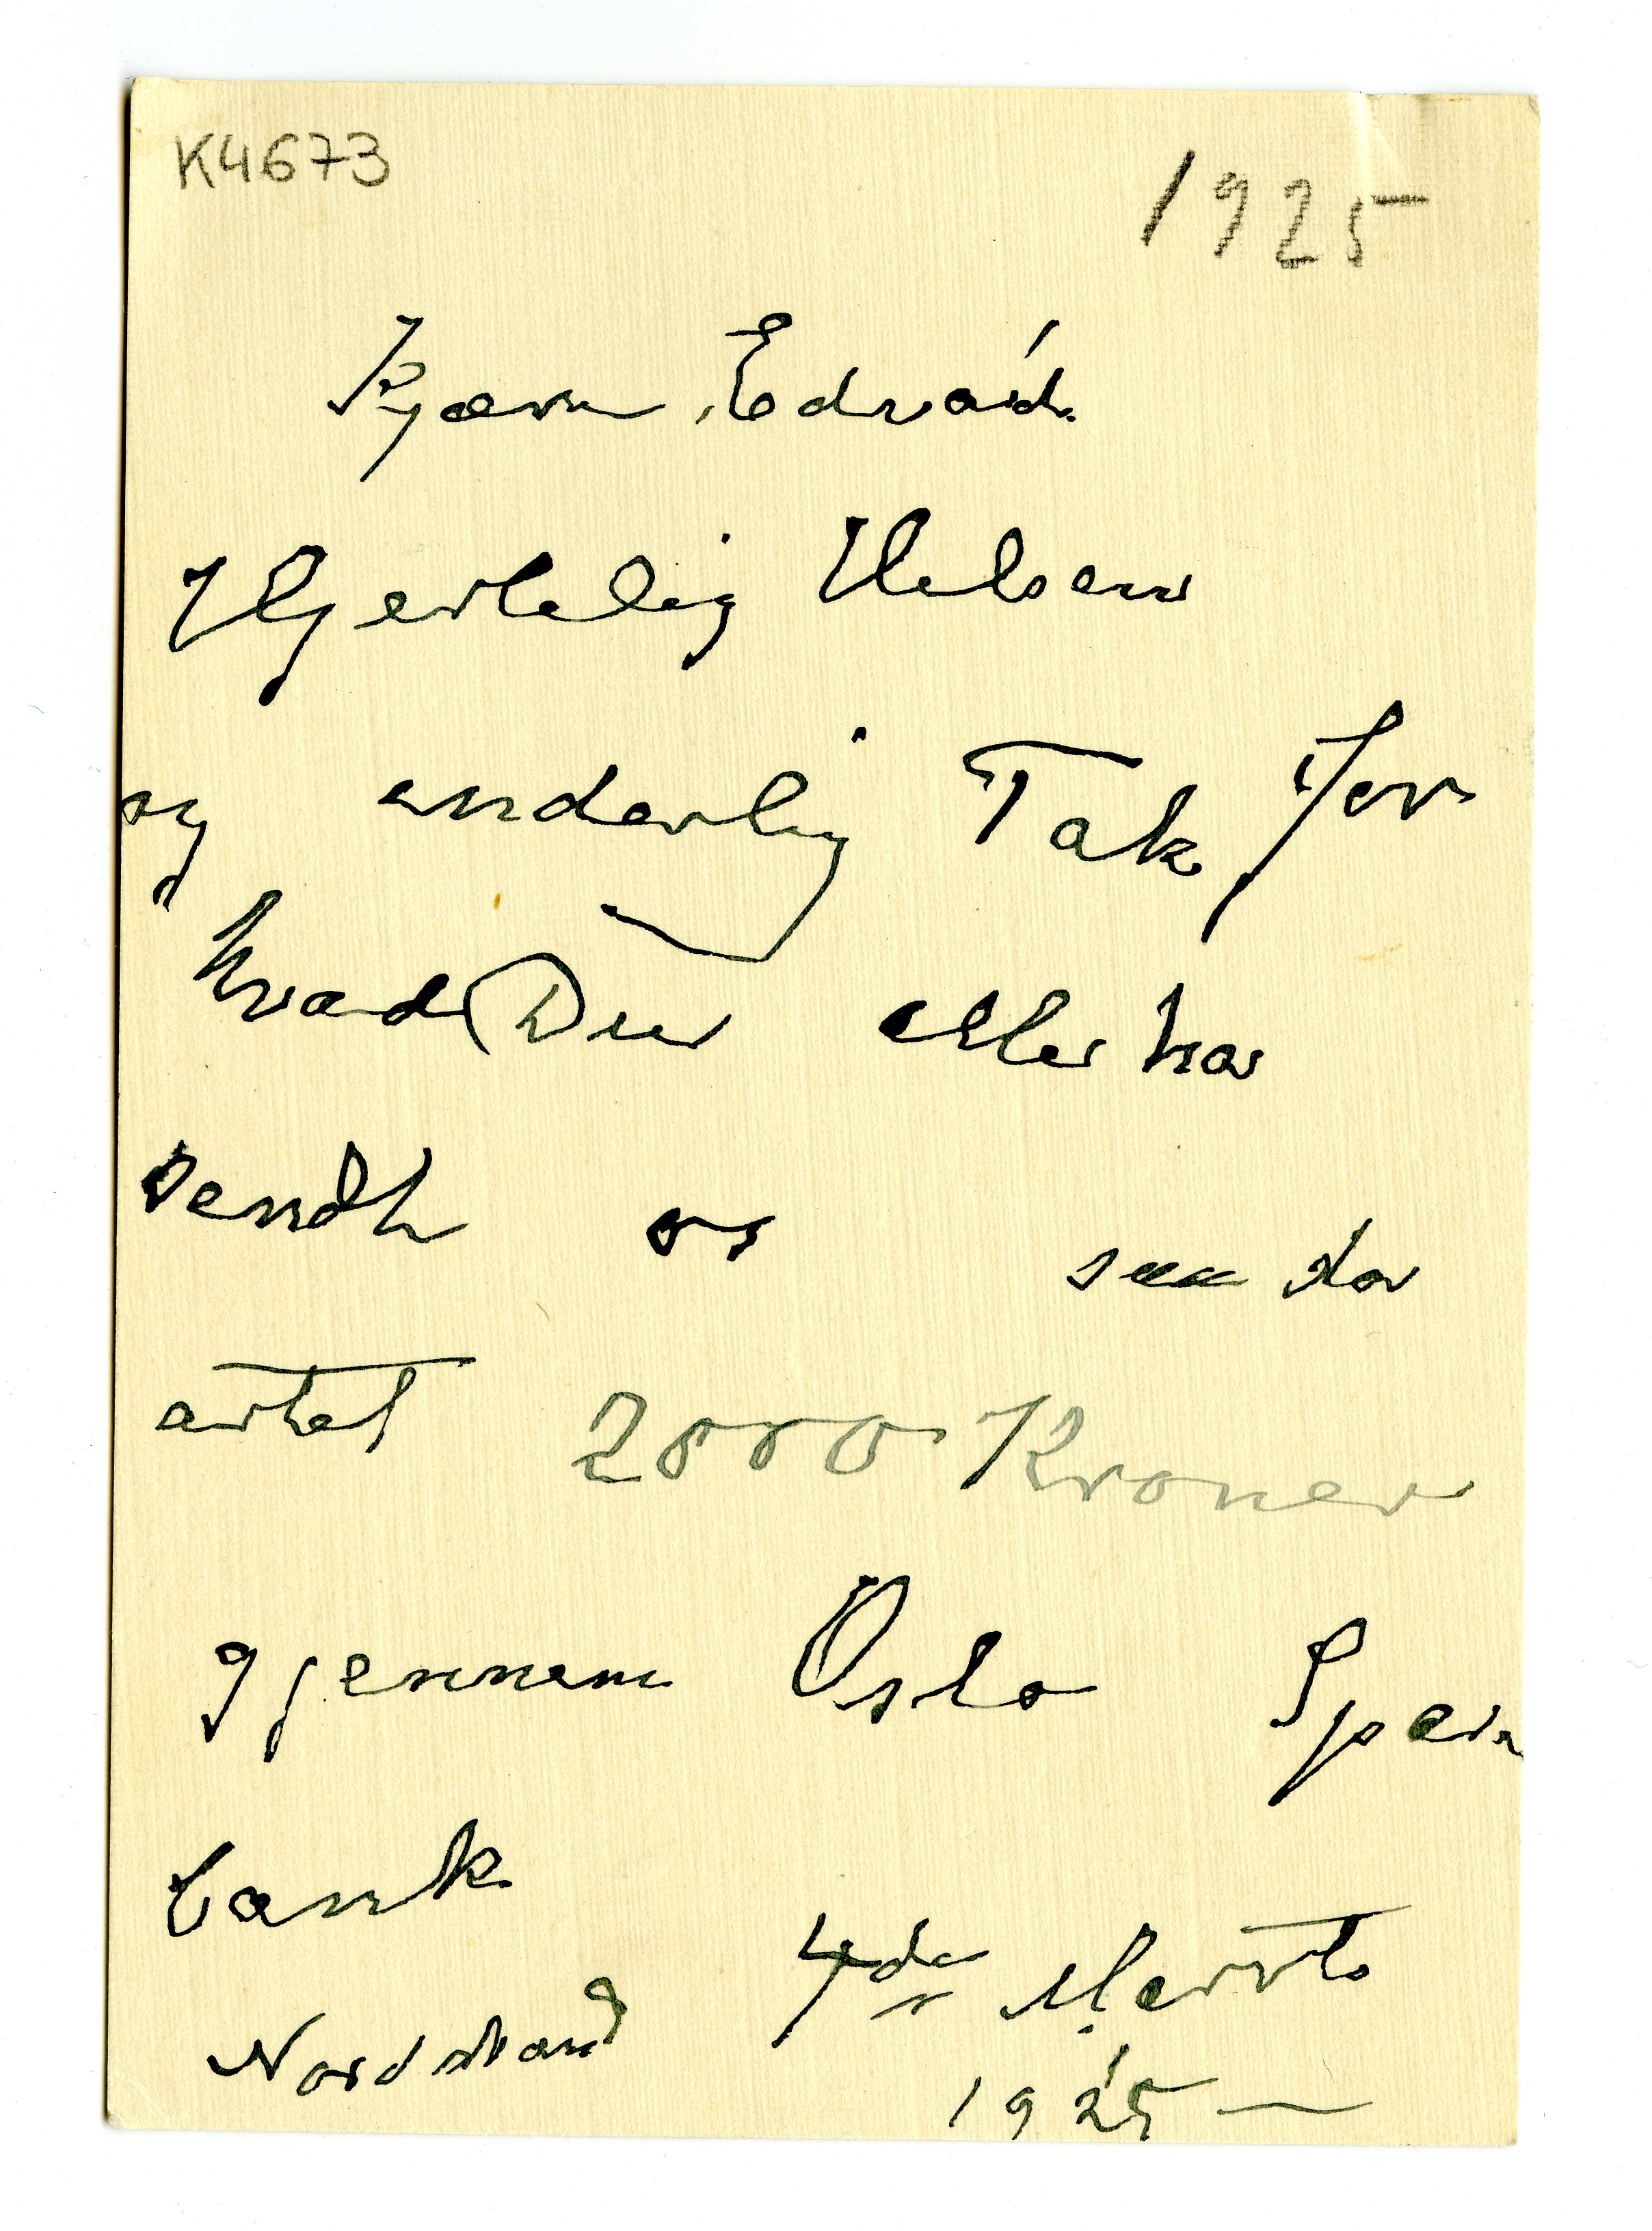 K4673
1925
Kjære Edvard.
Hjertelig Hilsen
og inderlig Tak for
hvad Du atter har
sendt os
2000 Kroner
gjennem Oslo Spar
bank
4de Marts
Nordstrand
1925 —